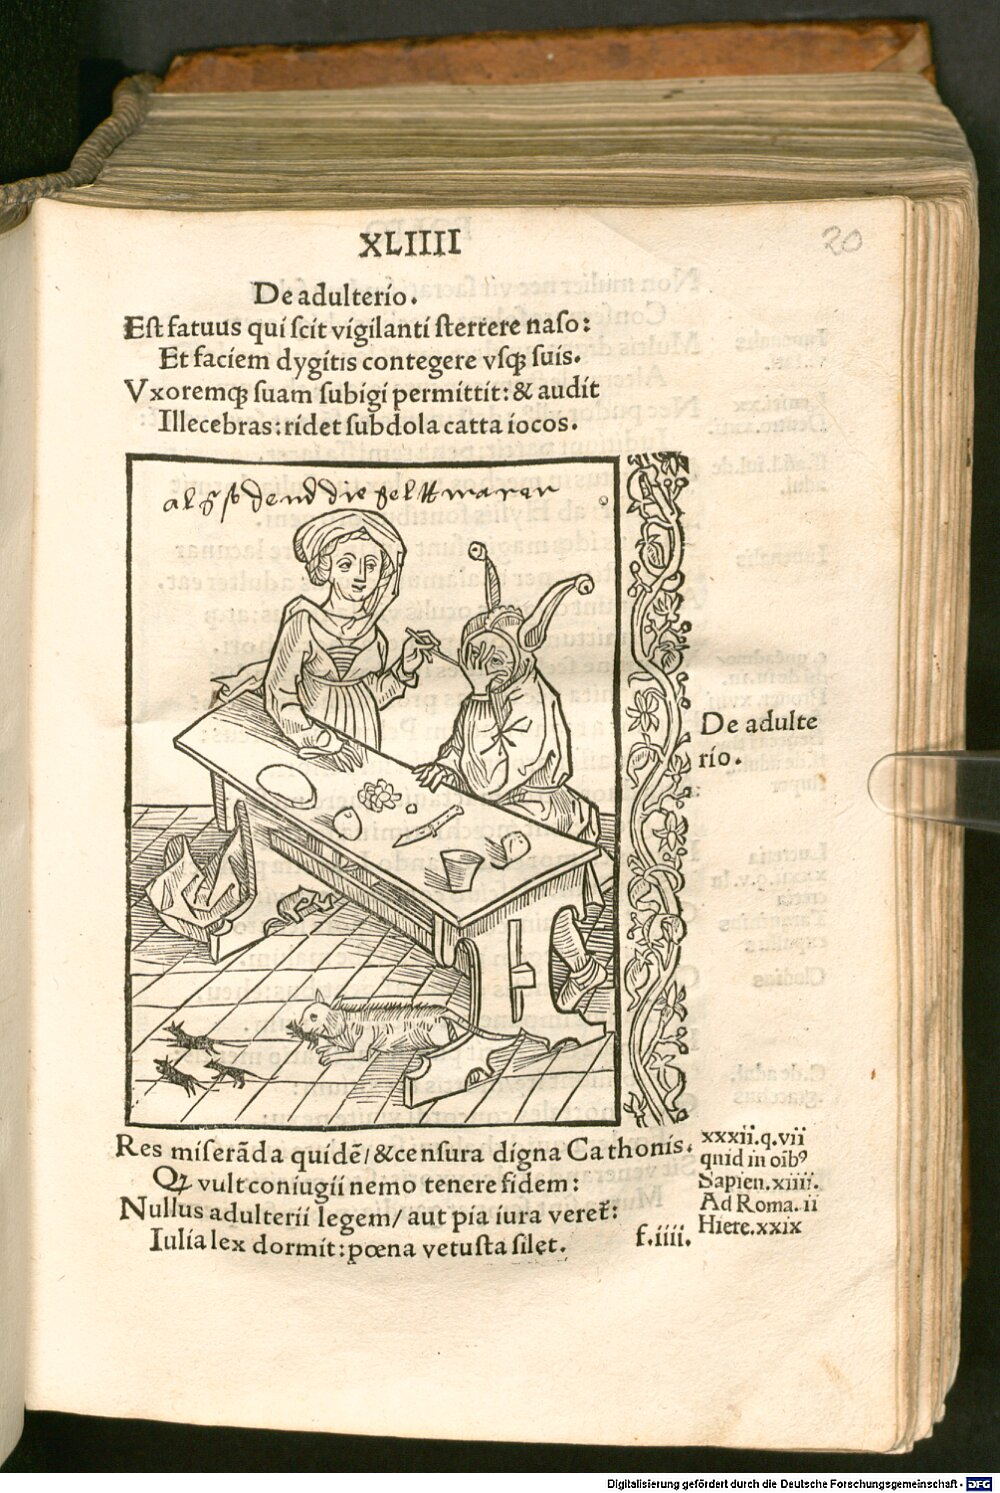 XLIIII
20
De adulterio.
Est fatuus qui scit vigilanti stertere naso:
Et faciem dygitis contegere vsqꝫ suis.
Vxoremqꝫ suam subigi permittit: & audit
Illecebras: ridet subdola catta iocos.
De adulte
rio.
Res miserāda quidē/ & censura digna Cathonis.
Qꝫ vult coniugii nemo tenere fidem:
Nullus adulterii legem/ aut pia iura veret᷑:
Iulia lex dormit: pœna vetusta silet.
f.iiii.
xxxii.q.vii
quid in oībꝰ
Sapien.xiiii.
Ad Roma.ii
Hiere.xxix
Digitalisierung gefördert durch die Deutsche Forschungsgemeinschaft - DFG